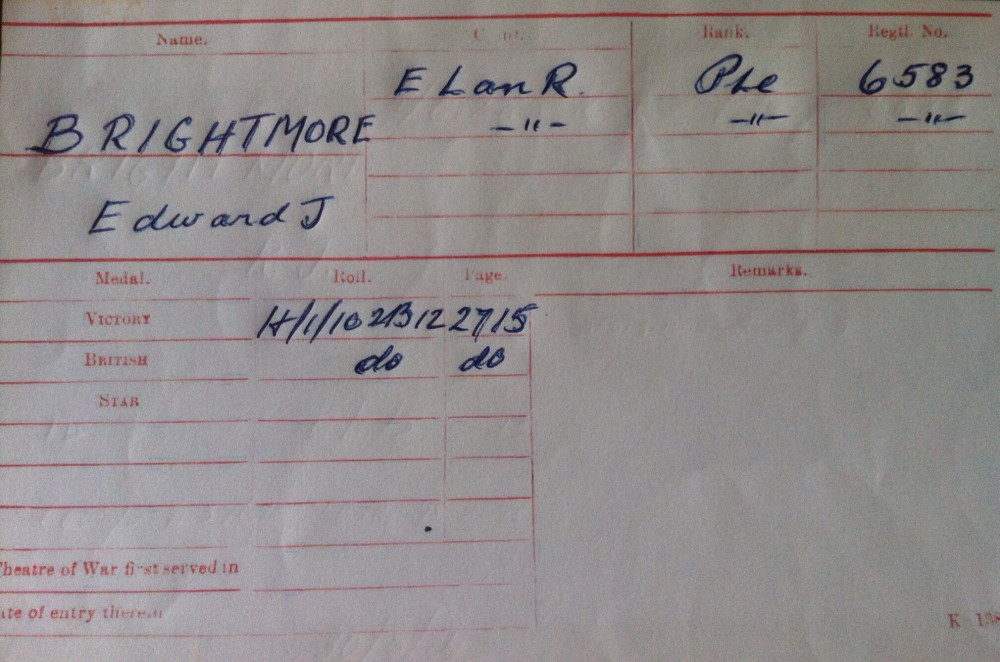 Name. Corps. Rank. Regtl. No.
E Lan R. Pte 6583
BRIGHTMORE -"- -"- -"-
Edward J
Medal. Roll. Page. Remarks.
VICTORY H/1/102B12 2715
BRITISH do do
STAR
Theatre of War first served in
ate of entry therein
K 138